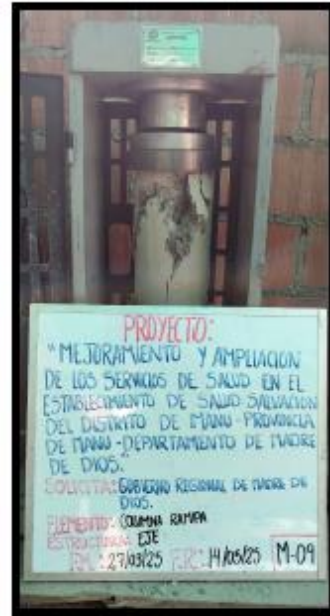 PROYECTO:
"MEJORAMIENTO Y AMPLIACION
DE LOS SERVICIOS DE SALUD EN EL
ESTABLECIMIENTO DE SALUD SALVACION
DEL DISTRITO DE MANU - PROVINCIA
DE MANU - DEPARTAMENTO DE MADRE
DE DIOS."
SOLICITA: GOBIERNO REGIONAL DE MADRE DE
DIOS.
ELEMENTO: COLUMNA RAMPA
ESTRUCTURA: EJE
F.M.: 27/03/25 F.R.: 14/05/25 M-09